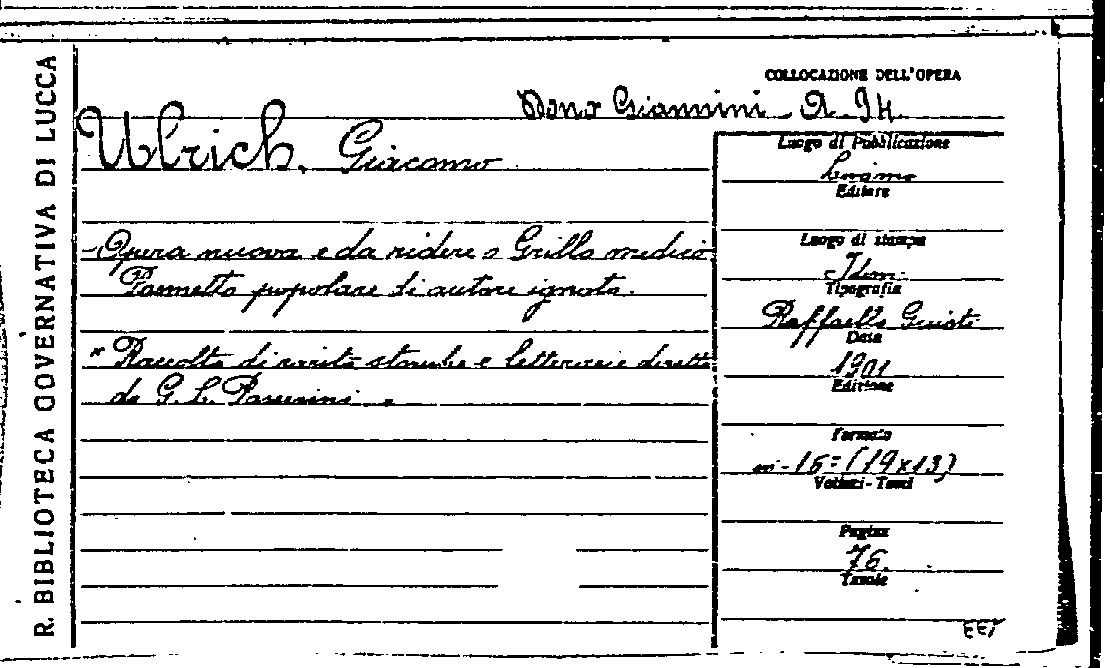 R. BIBLIOTECA GOVERNATIVA DI LUCCA
COLLOCAZIONE DELL'OPERA
Dono Giannini - A. 94.
Ulrich, Giacomo
- Opera nuova e da ridere o Grillo medico
Poemetto popolare di autore ignoto.
" Raccolta di rarità storiche e letterarie diretta
da G. L. Passerini.
Luogo di Pubblicazione
Livorno
Editore
Luogo di stampa
Idem.
Tipografia
Raffaello Giusti
Data
1901
Edizione
Formato
in-16= (19x13)
Volumi-Tomi
Pagine
76.
Tavole